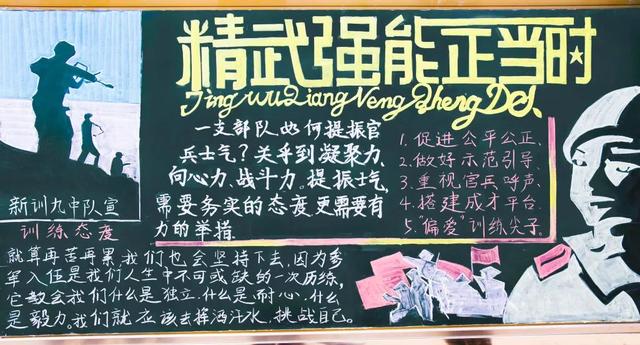 精武强能正当时
Jing Wu Qiang Neng Zheng Dang
一支部队如何提振官
兵士气？关乎到凝聚力、
向心力、战斗力。提振士气，
需要务实的态度更需要有
力的举措.
1.促进公平公正、
2.做好示范引导、
3.重视官兵呼声、
4.搭建成才平台、
5.“偏爱”训练尖子。
新训九中队宣
训练态度
就算再苦再累，我们也会坚持下去，因为参
军入伍是我们人生中不可或缺的一次历练，
它教会我们什么是独立，什么是耐心，什么
是毅力。我们就应该去挥洒汗水，挑战自己。